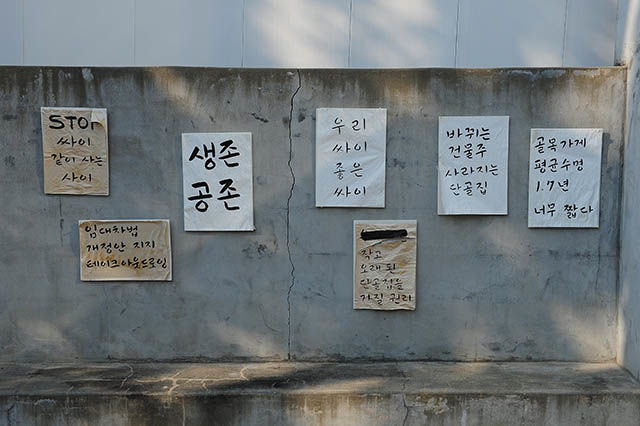 STOP
싸이
같이 사는
싸이
생존
공존
우리
싸이
좋은
싸이
바뀌는
건물주
사라지는
단골집
골목가게
평균수명
1.7년
너무 짧다
임대차법
개정안 지지
테이크아웃드로잉
작고
오래된
단골집을
가질 권리